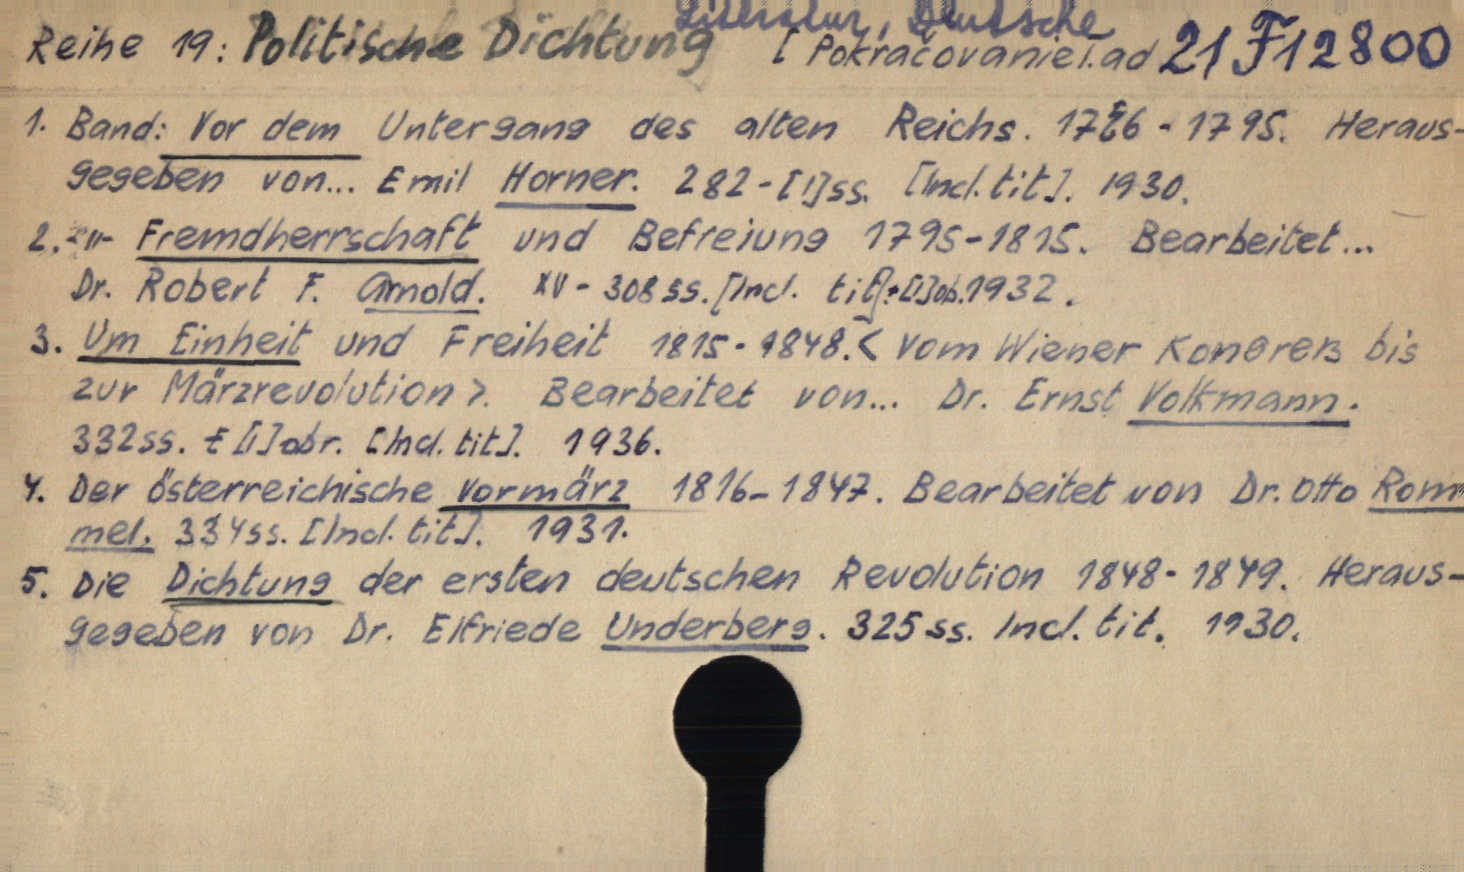 Literatur, Deutsche
Reihe 19: Politische Dichtung [Pokračovanie]. ad 21 F 12800
1. Band: Vor dem Untergang des alten Reichs. 1756 - 1795. Heraus-
gegeben von... Emil Horner. 282-[1]ss. [Incl. tit.]. 1930.
2. -"- Fremdherrschaft und Befreiung 1795-1815. Bearbeitet...
Dr. Robert F. Arnold. XV - 308 ss. [Incl. tit]+[1]ob. 1932.
3. Um Einheit und Freiheit 1815 - 1848. < Vom Wiener Kongreß bis
zur Märzrevolution>. Bearbeitet von... Dr. Ernst Volkmann.
332 ss. + [1] obr. [Incl. tit]. 1936.
4. Der österreichische Vormärz 1816-1847. Bearbeitet von Dr. Otto Rom-
mel. 334 ss. [Incl. tit]. 1931.
5. Die Dichtung der ersten deutschen Revolution 1848-1849. Heraus-
gegeben von Dr. Elfriede Underberg. 325 ss. Incl. tit. 1930.